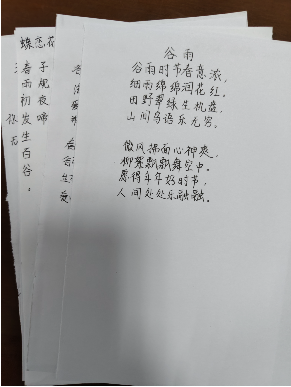 谷雨
谷雨时节春意浓，
细雨绵绵润花红。
田野翠绿生机盎，
山间鸟语乐无穷。
微风拂面心神爽，
柳絮飘飘舞空中。
愿得年年好时节，
人间处处乐融融。
蝶恋花
子规夜啼
春雨初发生百谷。